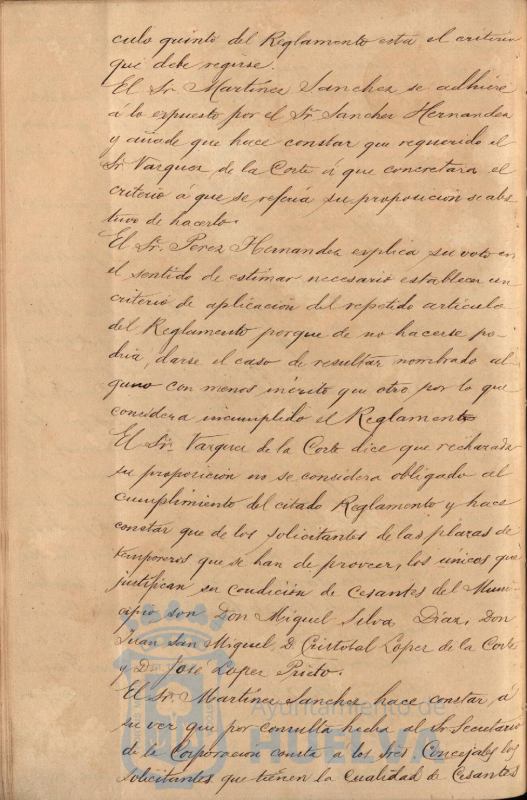 culo quinto del Reglamento está el criterio
que debe regirse.
El Sr. Martínez Sanchez se adhiere
á lo expuesto por el Sr. Sanchez Hernandez
y añade que hace constar que requerido el
Sr. Vazquez de la Corte á que concretara el
criterio á que se referia su proposicion se abs
tuvo de hacerlo.
El Sr. Perez Hernandez explica su voto en
el sentido de estimar necesario establecer un
criterio de aplicación del repetido articulo
del Reglamento porque de no hacerse po-
dria, darse el caso de resultar nombrado al-
guno con menos mérito que otro por lo que
considera incumplido el Reglamento
El Sr. Vazquez de la Corte dice que rechazada
su proposición no se considera obligado al
cumplimiento del citado Reglamento y hace
constar que de los solicitantes de las plazas de
temporeros que se han de proveer, los únicos que
justifican su condición de Cesantes del Muni-
cipio son Don Miguel Silva Díaz, Don
Juan San Miguel, D. Cristobal Lopez de la Corte
y Dn. José Lopez Prieto.
El Sr. Martínez Sanchez hace constar, á
su ver que por consulta hecha al Sr. Secretario
de la Corporacion consta a los Sres Concejales los
solicitantes que tienen la Cualidad de Cesantes
Ayuntamiento de
HUELVA